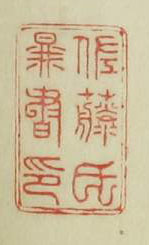 佐藤氏
暴書印